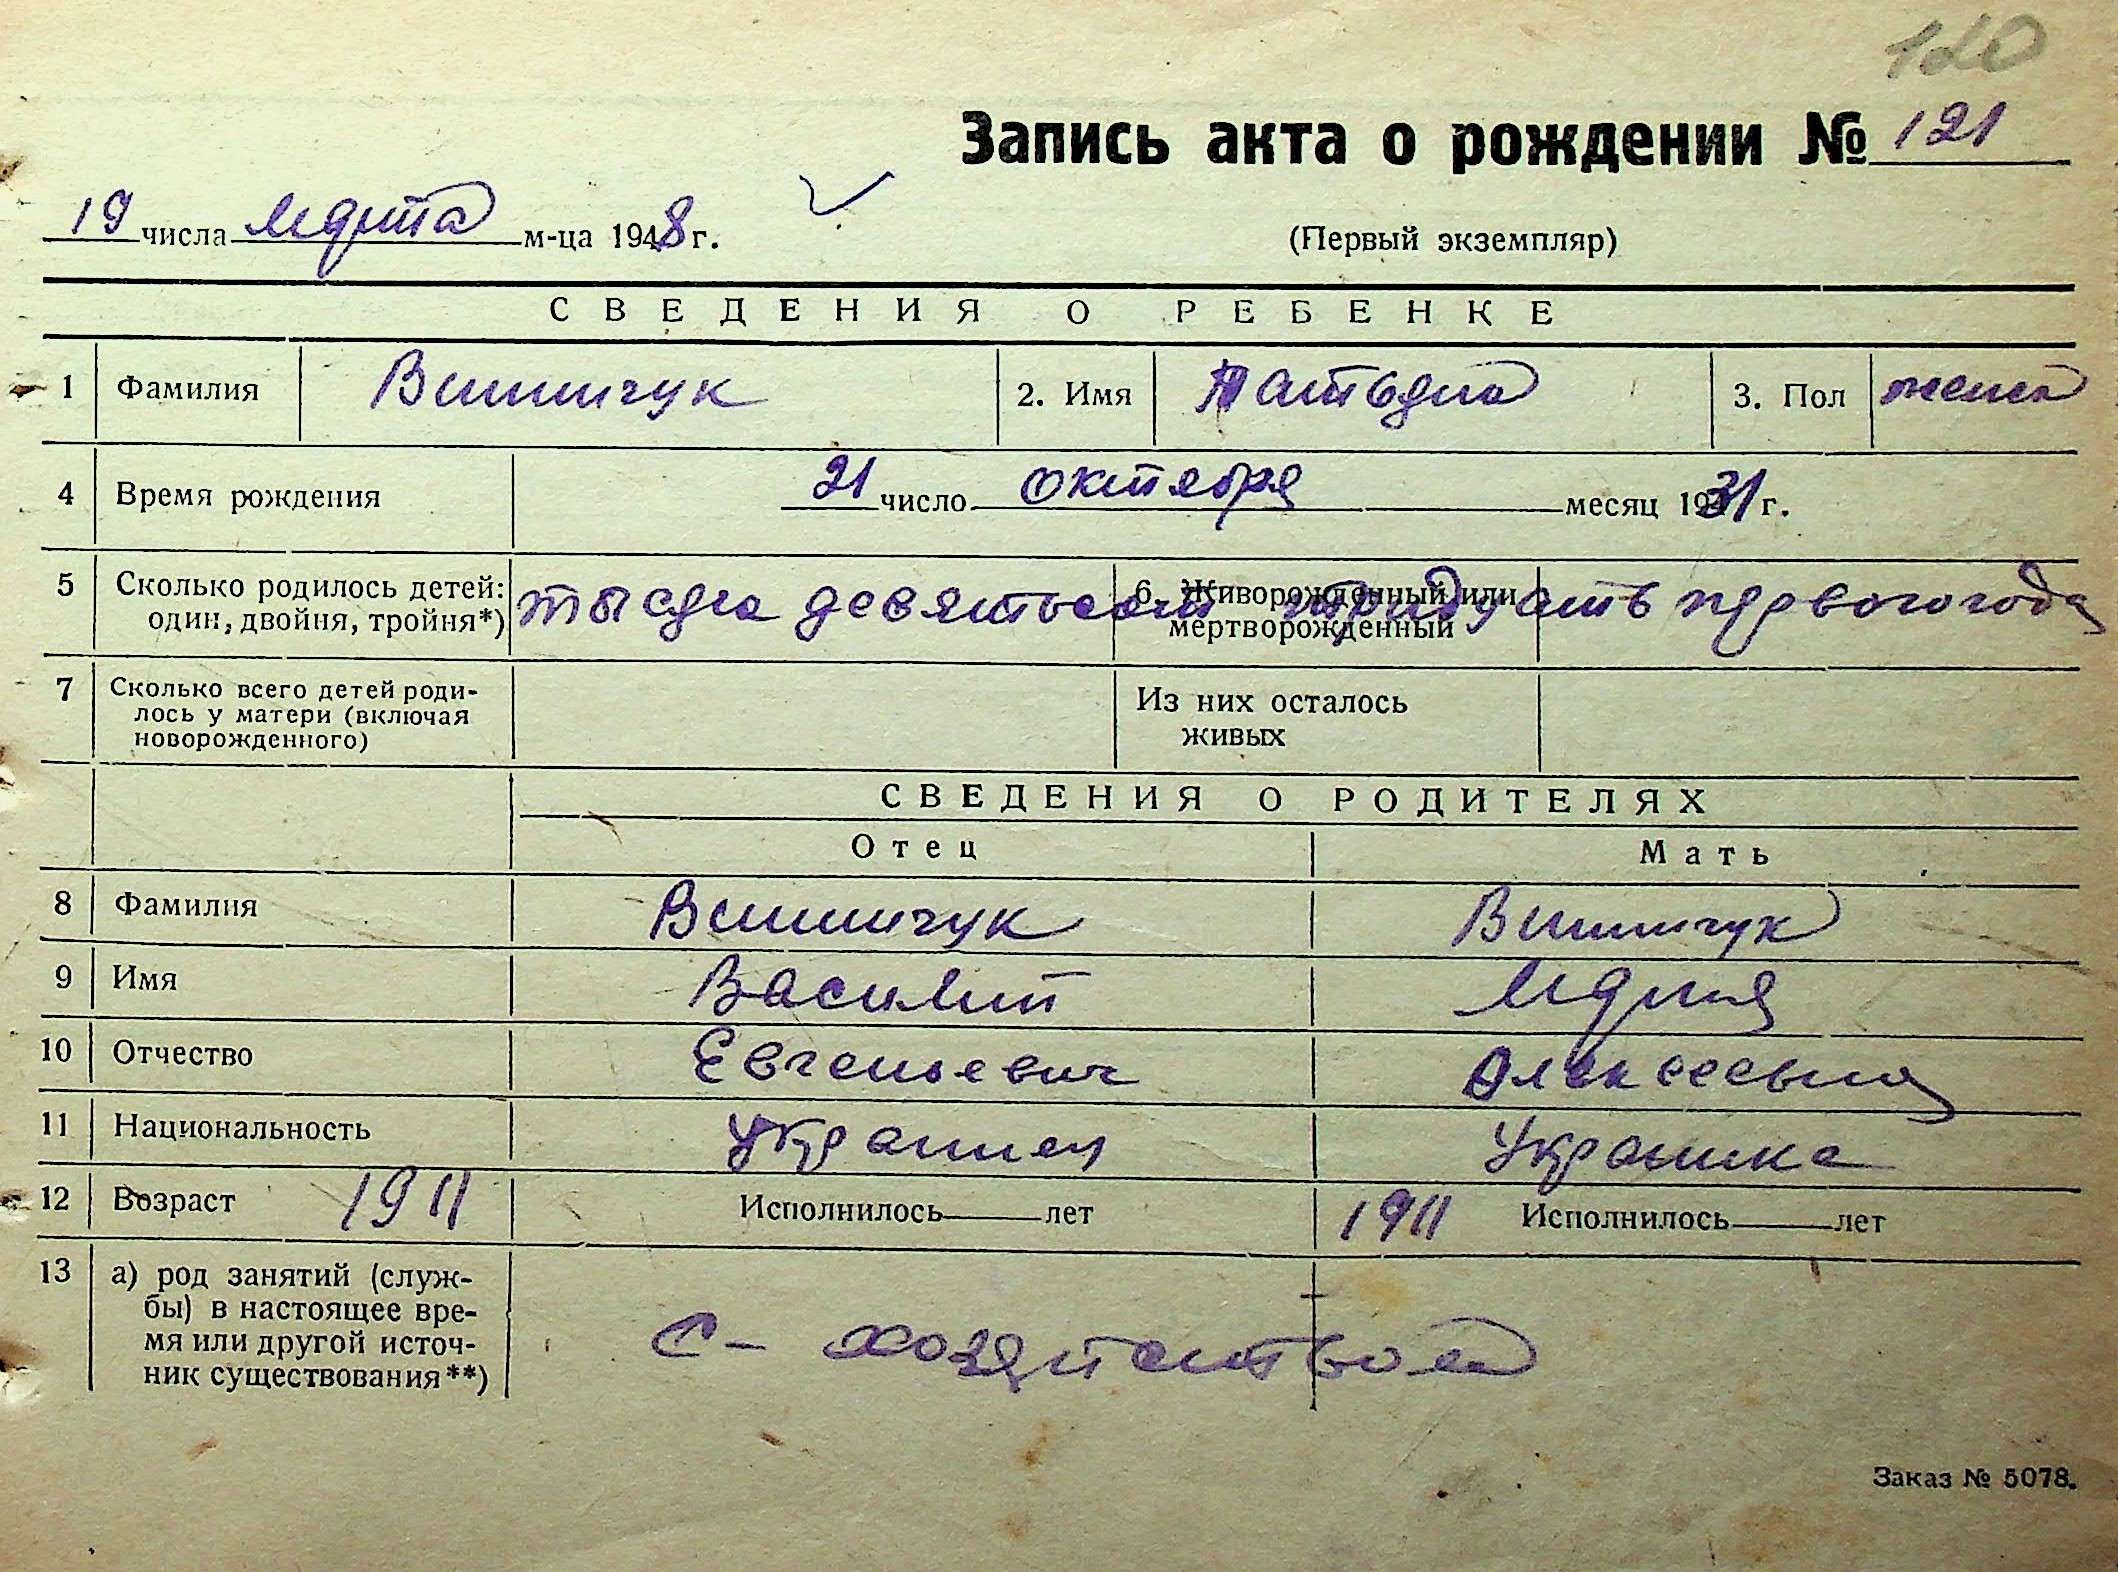 120
Запись акта о рождении № 121
19 числа марта м-ца 1948 г.
(Первый экземпляр)
СВЕДЕНИЯ О РЕБЕНКЕ
1 Фамилия Винничук 2. Имя Татьяна 3. Пол женск
4 Время рождения 21 число октября месяц 1931 г.
5 Сколько родилось детей: один, двойня, тройня*) тысяча девятьсот тридцать первого года
6. Живорожденный или мертворожденный
7 Сколько всего детей роди-
лось у матери (включая
новорожденного)
Из них осталось
живых
СВЕДЕНИЯ О РОДИТЕЛЯХ
Отец Мать
8 Фамилия Винничук Винничук
9 Имя Василий Мария
10 Отчество Евгеньевич Алексеевна
11 Национальность Украинец Украинка
12 Возраст 1911 Исполнилось лет 1911 Исполнилось лет
13 а) род занятий (служ-
бы) в настоящее вре-
мя или другой источ-
ник существования**)
С- хозяйством
Заказ № 5078.